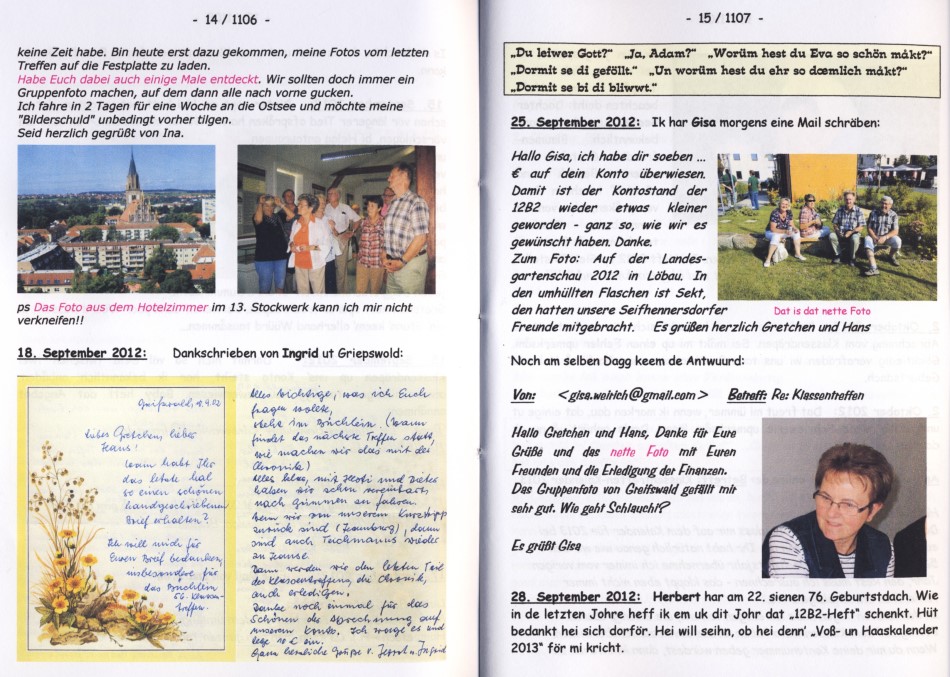 - 14 / 1106 -
keine Zeit habe. Bin heute erst dazu gekommen, meine Fotos vom letzten
Treffen auf die Festplatte zu laden.
Habe Euch dabei auch einige Male entdeckt. Wir sollten doch immer ein
Gruppenfoto machen, auf dem dann alle nach vorne gucken.
Ich fahre in 2 Tagen für eine Woche an die Ostsee und möchte meine
"Bilderschuld" unbedingt vorher tilgen.
Seid herzlich gegrüßt von Ina.
ps Das Foto aus dem Hotelzimmer im 13. Stockwerk kann ich mir nicht
verkneifen!!
18. September 2012: Dankschreiben von Ingrid ut Griepswold:
Greifswald,
Liebe Gretchen, lieber
Hans!
Wann habt Ihr
das letzte Mal
so einen schönen
handgeschriebenen
Brief erhalten?
Ich will mich für
Euren Brief bedanken,
insbesondere für
das Büchlein
56. Klassen-
treffen.
Alles Wichtige, was ich Euch
fragen wollte,
steht im Büchlein. (Wann
findet das nächste Treffen statt,
wie machen wir das mit der
Chronik)
Alles klar, mit und Dieter
haben wir schon vereinbart,
nach Grimmen zu fahren.
Wenn wir von unserem Kurztripp
zurück sind (Hamburg), dann
sind auch Teichmanns wieder
zu Hause.
Dann werden wir den letzten Teil
des Klassentreffens, die Chronik,
auch erledigen.
Danke noch einmal für das
Schönen der Abrechnung auf
unserem Konto. Ich es und
lege 10 € ein.
Ganz herzliche Grüße v. und Ingrid
- 15 / 1107 -
„Du leiwer Gott?“ „Ja, Adam?“ „Worüm hest du Eva so schön måkt?“
„Dormit se di geföllt.“ „Un worüm hest du ehr so dœmlich måkt?“
„Dormit se bi di bliwwt.“
25. September 2012: Ik har Gisa morgens eine Mail schräben:
Hallo Gisa, ich habe dir soeben ...
€ auf dein Konto überwiesen.
Damit ist der Kontostand der
12B2 wieder etwas kleiner
geworden - ganz so, wie wir es
gewünscht haben. Danke.
Zum Foto: Auf der Landes-
gartenschau 2012 in Löbau. In
den umhüllten Flaschen ist Sekt,
den hatten unsere Seifhennersdorfer
Freunde mitgebracht. Es grüßen herzlich Gretchen und Hans
Dat is dat nette Foto
Noch am selben Dagg keem de Antwuurd:
Von: <gisa.weirich@gmail.com> Betreff: Re: Klassentreffen
Hallo Gretchen und Hans, Danke für Eure
Grüße und das nette Foto mit Euren
Freunden und die Erledigung der Finanzen.
Das Gruppenfoto von Greifswald gefällt mir
sehr gut. Wie geht Schlaucht?
Es grüßt Gisa
28. September 2012: Herbert har am 22. sienen 76. Geburtstdach. Wie
in de letzten Johre heff ik em uk dit Johr dat „12B2-Heft“ schenkt. Hüt
bedankt hei sich dorför. Hei will seihn, ob hei denn' „Voß- un Haaskalender
2013“ för mi kricht.